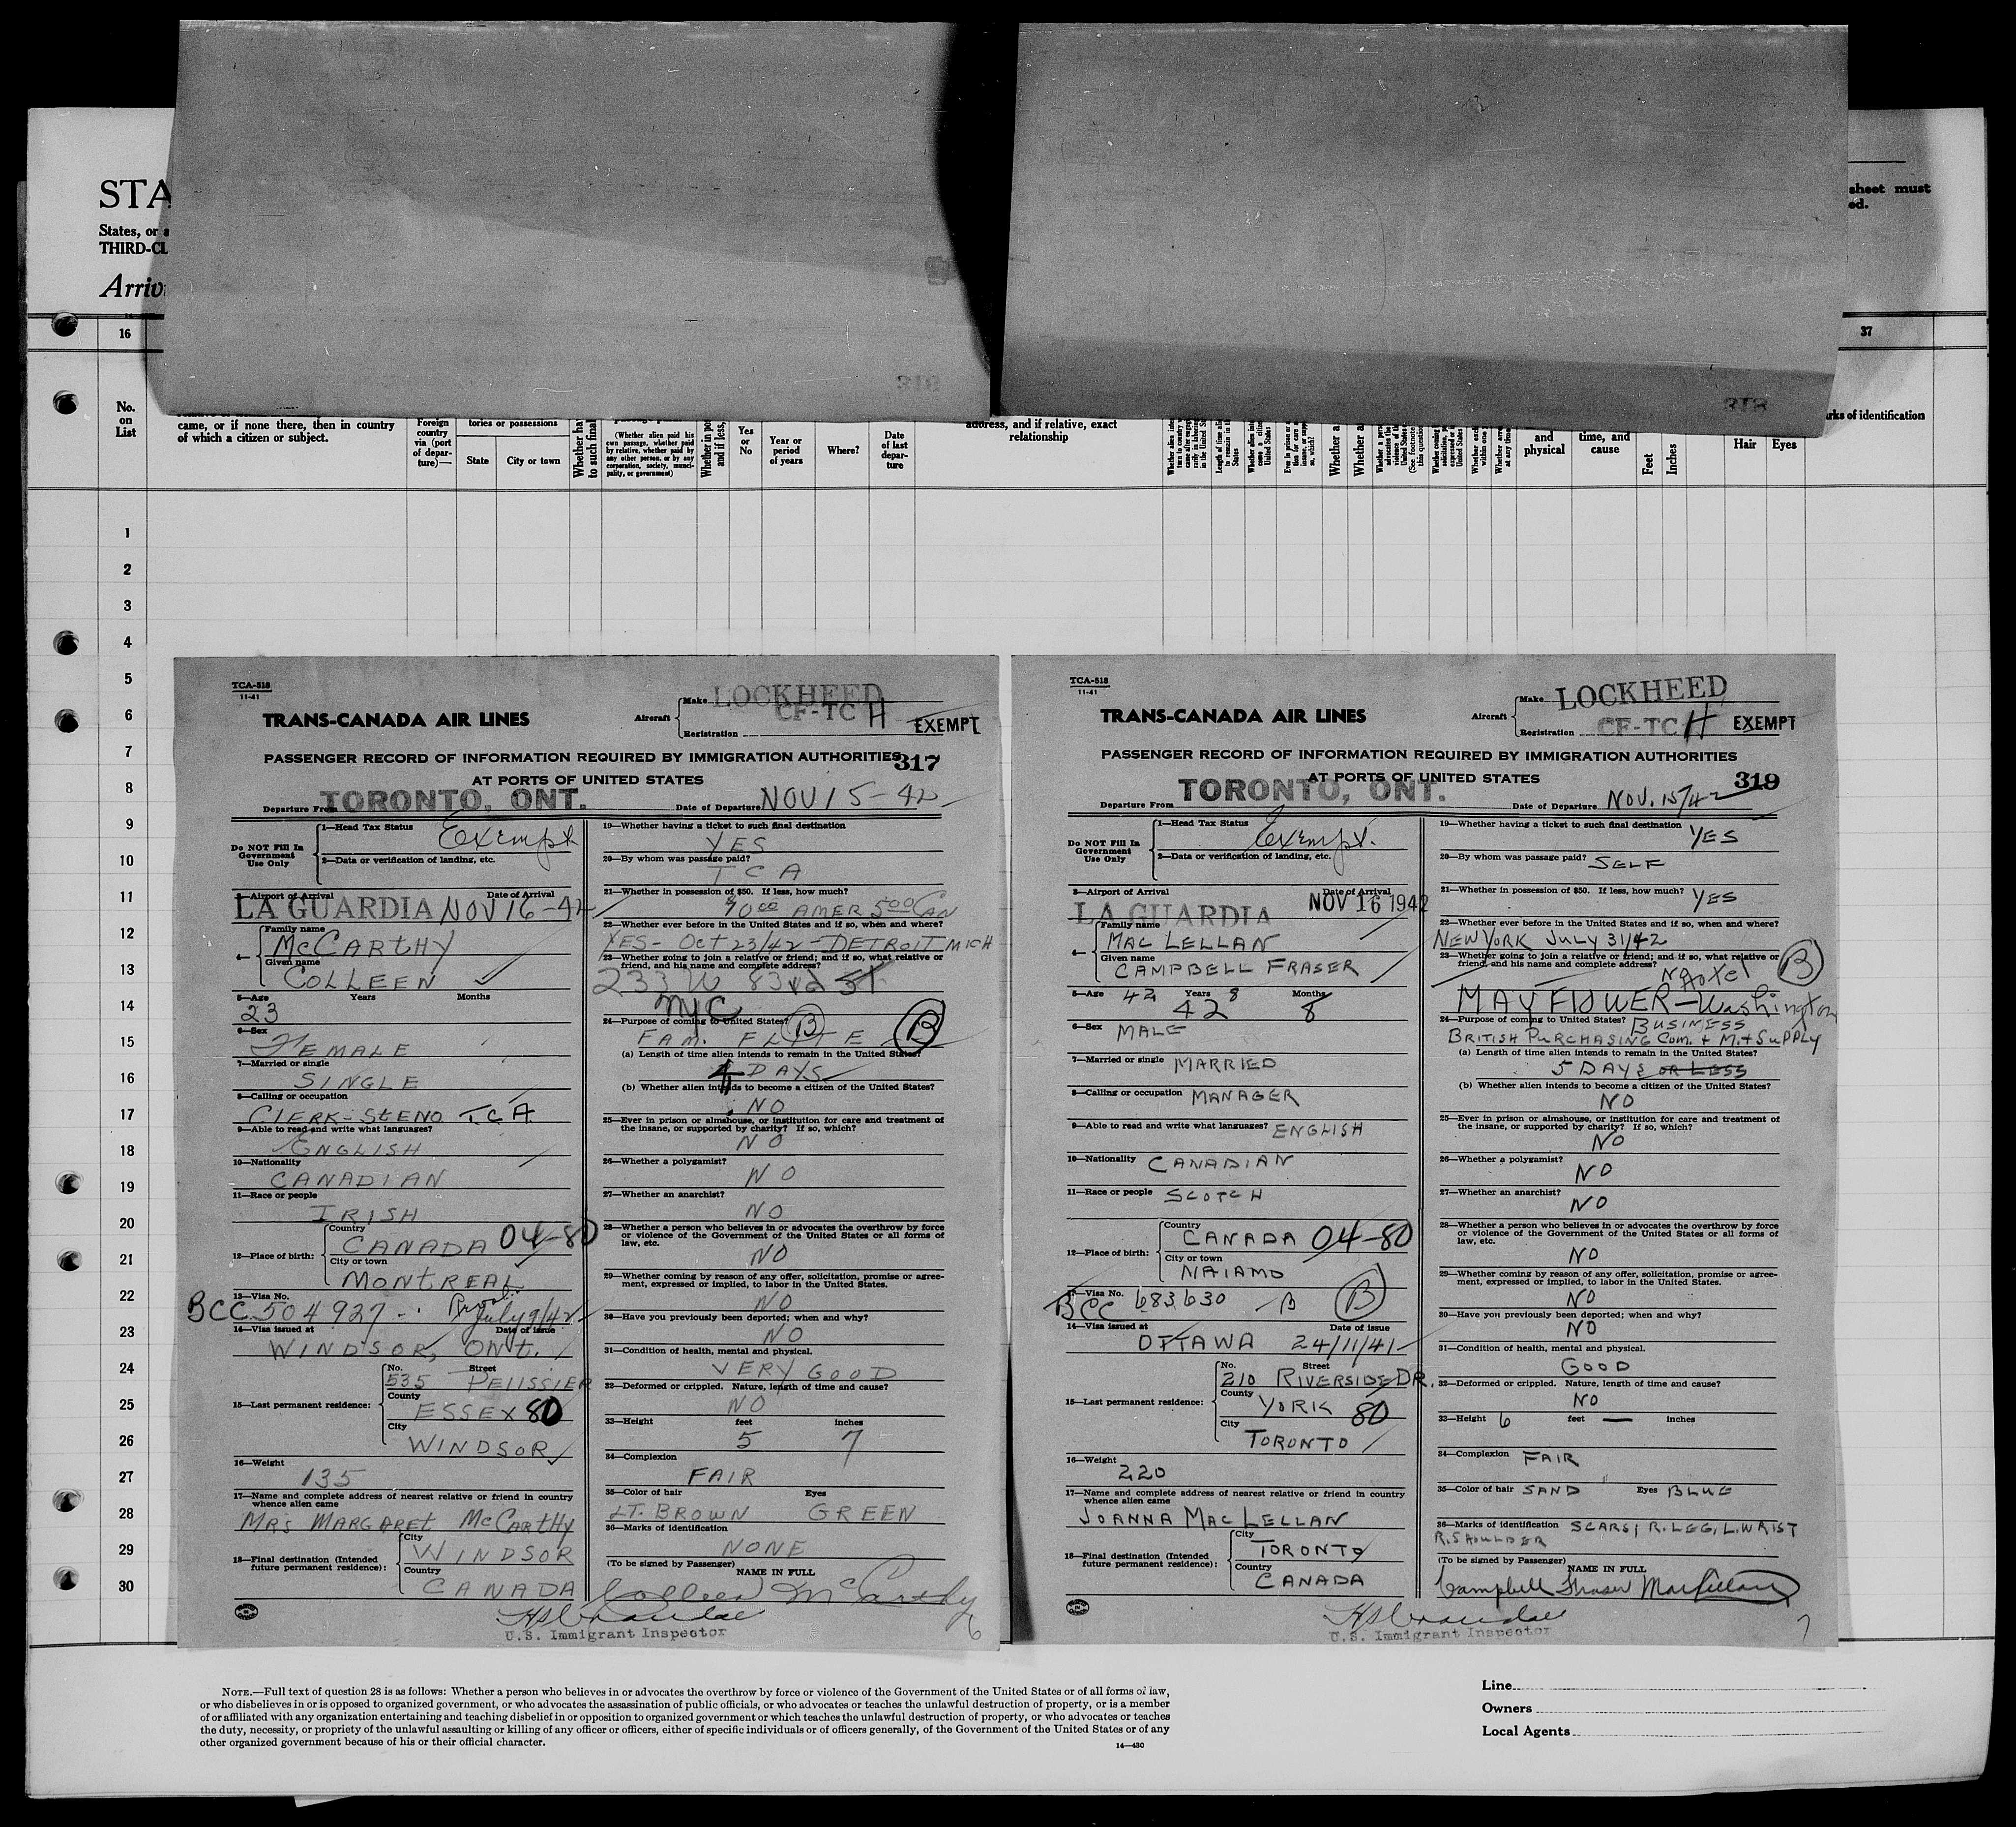 STA
States, or
THIRD-CL
Arriv
sheet must
ed.
16
37
316
318
No.
on
List
came, or if none there, then in country
of which a citizen or subject.
Foreign
country
via (port
of depar-
ture)—
tories or possessions
State
City or town
(Whether alien paid his
own passage, whether paid
by relative, whether paid by
any other person, or by any
corporation, society, munici-
pality, or government)
Yes
or
No
Year or
period
of years
Where?
Date
of last
depar-
ture
address, and if relative, exact
relationship
and
physical
time, and
cause
Feet
Inches
Hair
Eyes
rks of identification
1
2
3
4
5
6
7
8
9
10
11
12
13
14
15
16
17
18
19
20
21
22
23
24
25
26
27
28
29
30
TCA-518
11-41
TRANS-CANADA AIR LINES
Aircraft
Make LOCKHEED
Registration CF-TC H
EXEMPT
PASSENGER RECORD OF INFORMATION REQUIRED BY IMMIGRATION AUTHORITIES
317
AT PORTS OF UNITED STATES
Departure From TORONTO, ONT.
Date of Departure NOV 15-42
Do NOT Fill In
Government
Use Only
1—Head Tax Status Exempt
2—Data or verification of landing, etc.
3—Airport of Arrival
Date of Arrival
LA GUARDIA NOV 16-42
4—
Family name
McCARTHY
Given name
COLLEEN
5—Age Years Months
23
6—Sex
FEMALE
7—Married or single
SINGLE
8—Calling or occupation
CLERK-STENO TCA
9—Able to read and write what languages?
ENGLISH
10—Nationality
CANADIAN
11—Race or people
IRISH
12—Place of birth:
Country
CANADA 04-80
City or town
MONTREAL
13—Visa No.
BCC 504927 July 9/42
14—Visa issued at Date of issue
WINDSOR, ONT.
15—Last permanent residence:
No. Street
535 PELISSIER
County
ESSEX 80
City
WINDSOR
16—Weight
135
17—Name and complete address of nearest relative or friend in country
whence alien came
MRS MARGARET McCARTHY
18—Final destination (Intended
future permanent residence):
City
WINDSOR
Country
CANADA
19—Whether having a ticket to such final destination
YES
20—By whom was passage paid?
TCA
21—Whether in possession of $50. If less, how much?
AMER 5.00 CAN
22—Whether ever before in the United States and if so, when and where?
YES- Oct 23/42 - DETROIT MICH
23—Whether going to join a relative or friend; and if so, what relative or
friend, and his name and complete address?
233 W 83rd St
NYC
24—Purpose of coming to United States? B
B
(a) Length of time alien intends to remain in the United States?
4 DAYS
(b) Whether alien intends to become a citizen of the United States?
NO
25—Ever in prison or almshouse, or institution for care and treatment of
the insane, or supported by charity? If so, which?
NO
26—Whether a polygamist?
NO
27—Whether an anarchist?
NO
28—Whether a person who believes in or advocates the overthrow by force
or violence of the Government of the United States or all forms of
law, etc.
NO
29—Whether coming by reason of any offer, solicitation, promise or agree-
ment, expressed or implied, to labor in the United States.
NO
30—Have you previously been deported; when and why?
NO
31—Condition of health, mental and physical.
VERY GOOD
32—Deformed or crippled. Nature, length of time and cause?
NO
33—Height feet inches
5 7
34—Complexion
FAIR
35—Color of hair Eyes
LT. BROWN GREEN
36—Marks of identification
NONE
(To be signed by Passenger)
NAME IN FULL
Colleen McCarthy
U.S. Immigrant Inspector
6
TCA-518
11-41
TRANS-CANADA AIR LINES
Aircraft
Make LOCKHEED
Registration CF-TC H
EXEMPT
PASSENGER RECORD OF INFORMATION REQUIRED BY IMMIGRATION AUTHORITIES
AT PORTS OF UNITED STATES
319
Departure From TORONTO, ONT.
Date of Departure NOV. 15/42
Do NOT Fill In
Government
Use Only
1—Head Tax Status Exempt.
2—Data or verification of landing, etc.
3—Airport of Arrival
Date of Arrival
LA GUARDIA NOV 16 1942
4—
Family name
MAC LELLAN
Given name
CAMPBELL FRASER
5—Age 42 Years 8 Months
42 8
6—Sex MALE
7—Married or single MARRIED
8—Calling or occupation MANAGER
9—Able to read and write what languages? ENGLISH
10—Nationality CANADIAN
11—Race or people SCOTCH
12—Place of birth:
Country
CANADA 04-80
City or town
NAIAMO
13—Visa No.
BCC 683630 B B
14—Visa issued at Date of issue
OTTAWA 24/11/41
15—Last permanent residence:
No. Street
210 RIVERSIDE DR.
County
YORK 80
City
TORONTO
16—Weight
220
17—Name and complete address of nearest relative or friend in country
whence alien came
JOANNA MAC LELLAN
18—Final destination (Intended
future permanent residence):
City
TORONTO
Country
CANADA
19—Whether having a ticket to such final destination
YES
20—By whom was passage paid? SELF
21—Whether in possession of $50. If less, how much? YES
22—Whether ever before in the United States and if so, when and where?
NEW YORK JULY 31/42
23—Whether going to join a relative or friend; and if so, what relative or
friend, and his name and complete address? NO Hotel B
MAYFLOWER - Washington
24—Purpose of coming to United States? BUSINESS
BRITISH PURCHASING COM. + M. + SUPPLY
(a) Length of time alien intends to remain in the United States?
5 DAYS OR LESS
(b) Whether alien intends to become a citizen of the United States?
NO
25—Ever in prison or almshouse, or institution for care and treatment of
the insane, or supported by charity? If so, which?
NO
26—Whether a polygamist?
NO
27—Whether an anarchist?
NO
28—Whether a person who believes in or advocates the overthrow by force
or violence of the Government of the United States or all forms of
law, etc.
NO
29—Whether coming by reason of any offer, solicitation, promise or agree-
ment, expressed or implied, to labor in the United States.
NO
30—Have you previously been deported; when and why?
NO
31—Condition of health, mental and physical.
GOOD
32—Deformed or crippled. Nature, length of time and cause?
NO
33—Height 6 feet — inches
34—Complexion FAIR
35—Color of hair SAND Eyes BLUE
36—Marks of identification SCARS; R. LEG, L. WRIST
R. SHOULDER
(To be signed by Passenger)
NAME IN FULL
Campbell Fraser MacLellan
U.S. Immigrant Inspector
7
NOTE.—Full text of question 28 is as follows: Whether a person who believes in or advocates the overthrow by force or violence of the Government of the United States or of all forms of law,
or who disbelieves in or is opposed to organized government, or who advocates the assassination of public officials, or who advocates or teaches the unlawful destruction of property, or is a member
of or affiliated with any organization entertaining and teaching disbelief in or opposition to organized government or which teaches the unlawful destruction of property, or who advocates or teaches
the duty, necessity, or propriety of the unlawful assaulting or killing of any officer or officers, either of specific individuals or of officers generally, of the Government of the United States or of any
other organized government because of his or their official character.
14—430
Line
Owners
Local Agents